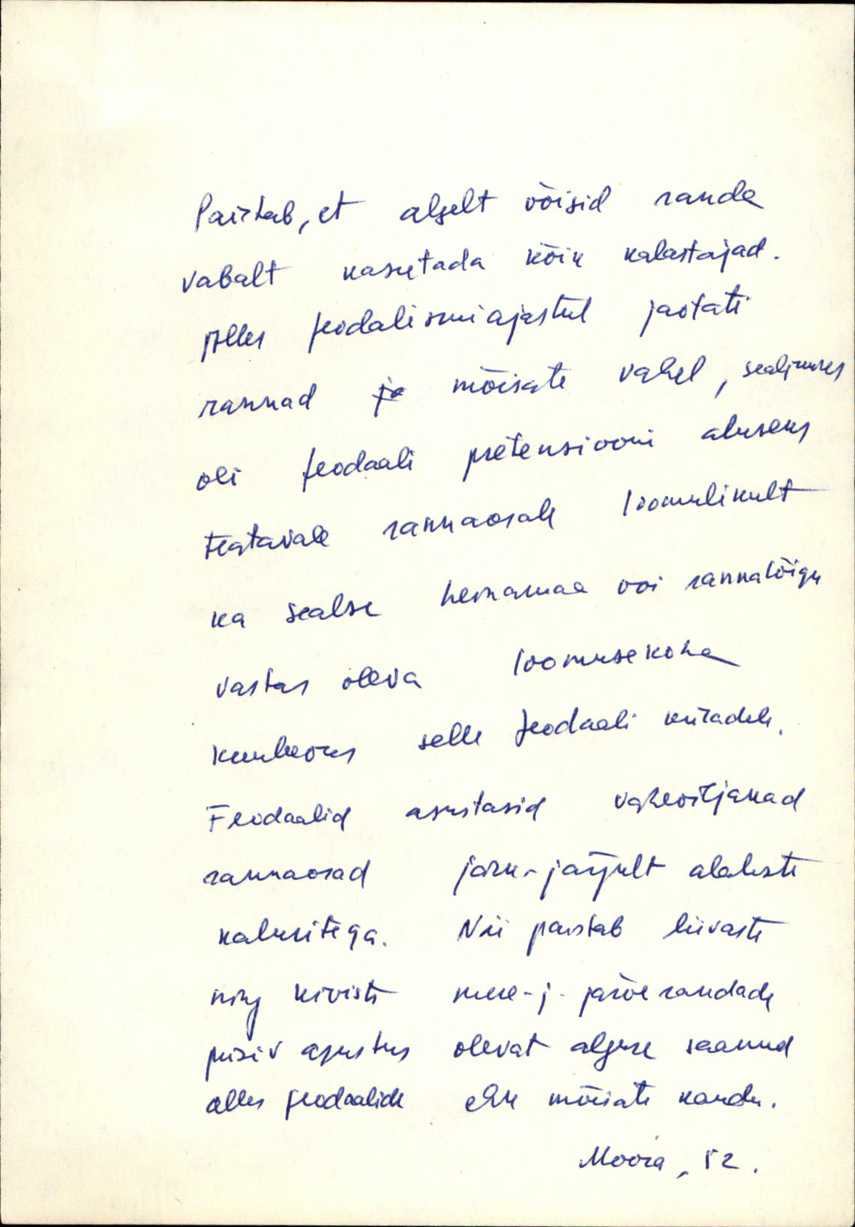 Paistab, et algselt võisid randa
vabalt kasutada kõik kalastajad.
Alles feodalismiajastul jaotati
rannad mõisate vahel, sealjuures
oli feodaali pretensiooni aluseks
teatavale rannaosale loomulikult
ka sealse heinamaa või rannalõigu
vastas oleva loomusekoha
kuuluvus selle feodaali küladele.
Feodaalid asustasid
rannaosad järk-järgult alaliste
kaluritega. Nii paistab liivaste
ning kiviste mere- j. järverandade
püsiv asustus olevat alguse saanud
alles feodaalide ehk mõisate kaudu.
Moora, 52.